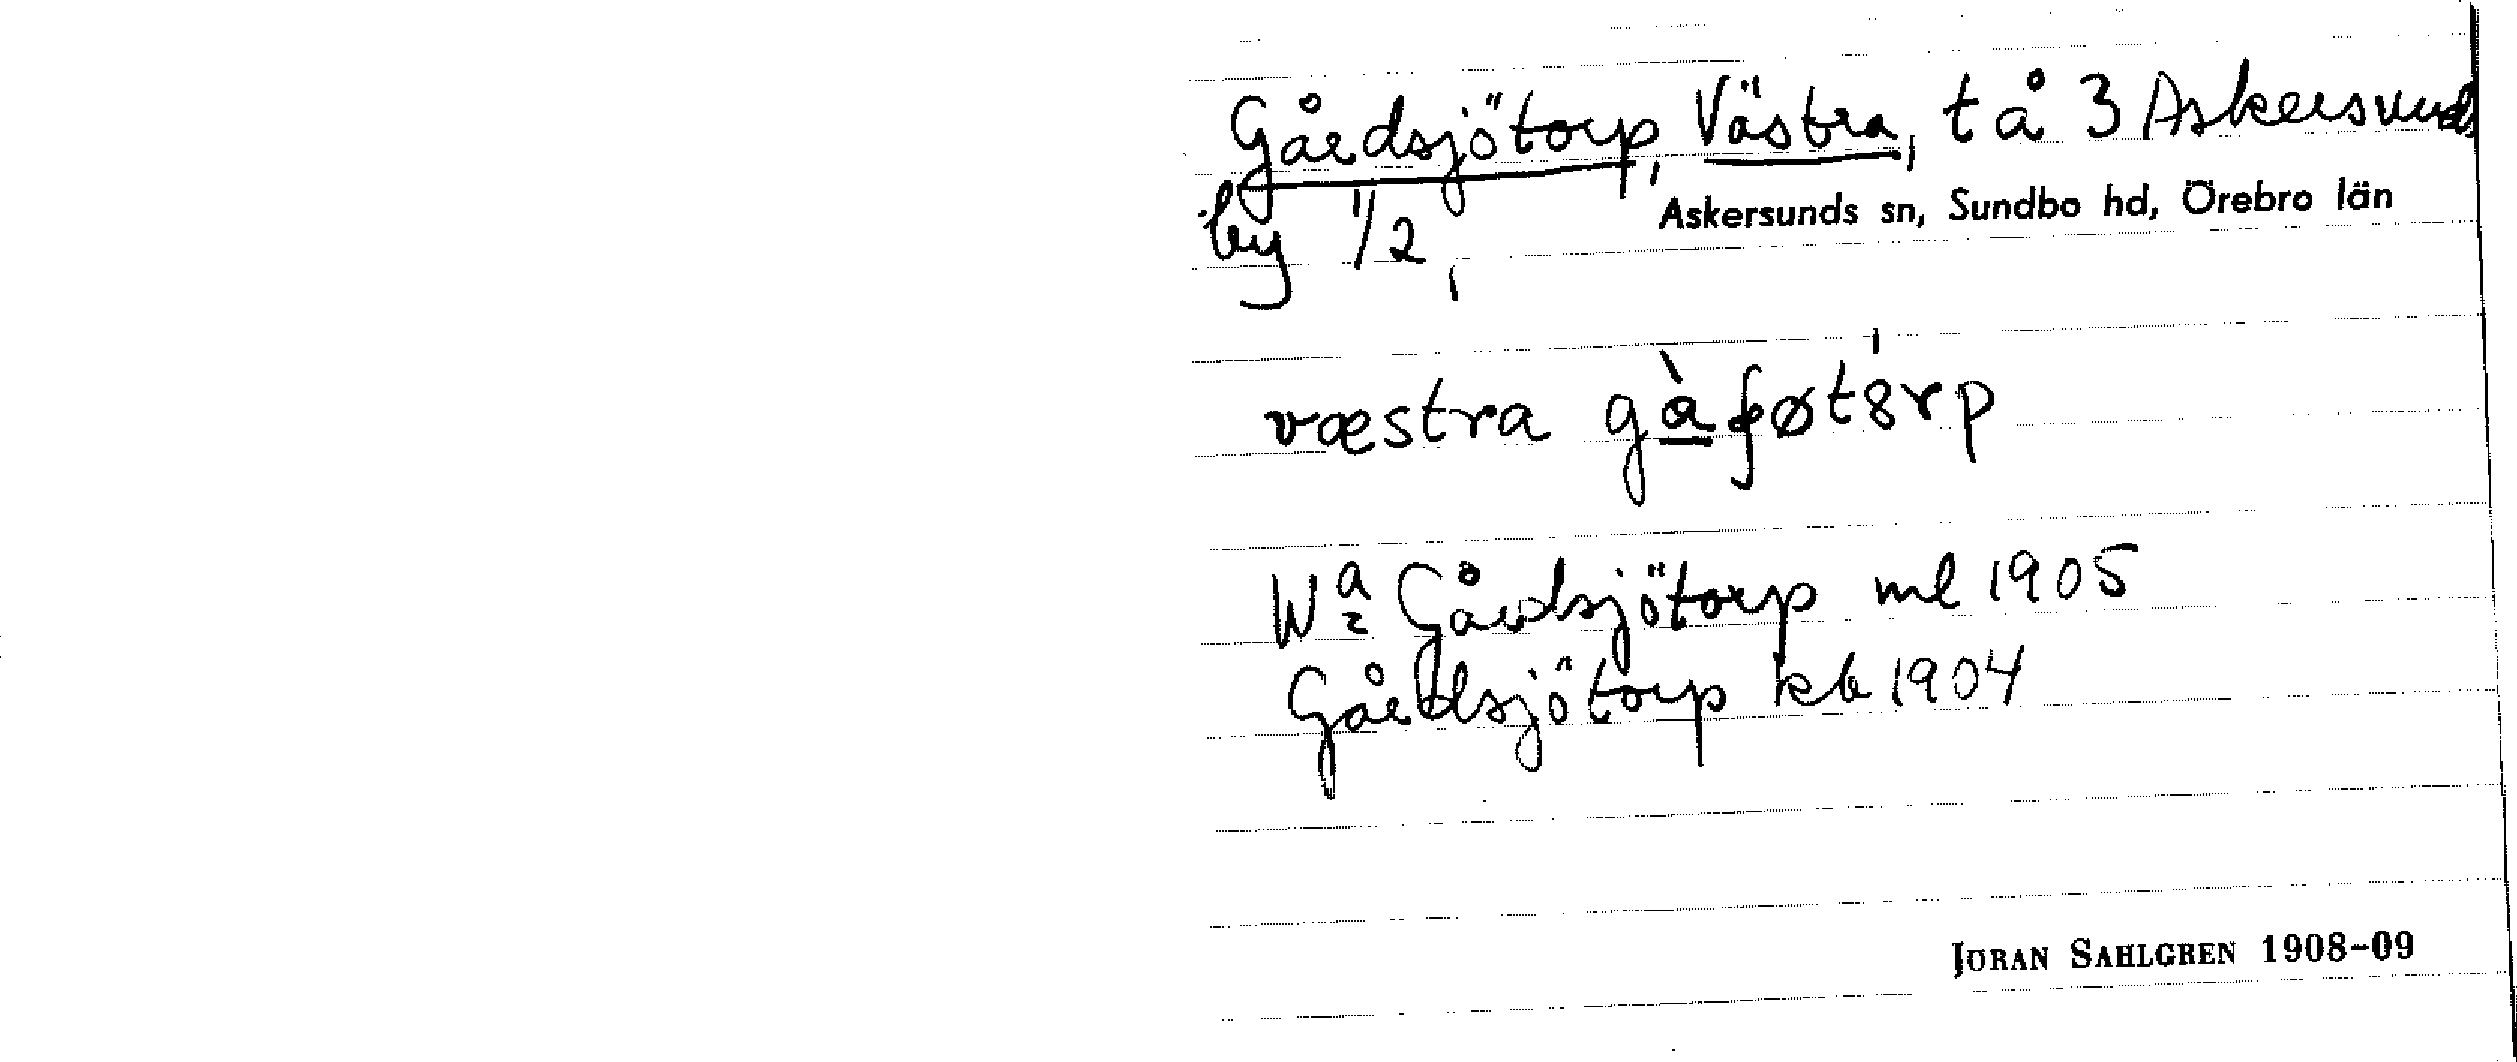 Gårdsjötorp, Västra, t å 3 Askersunds
by 1/2,
Askersunds sn, Sundbo hd, Örebro län
væstra
Wa Gårdsjötorp ml 1905
Gårdsjötorp kb 1904
JÖRAN SAHLGREN 1908-09